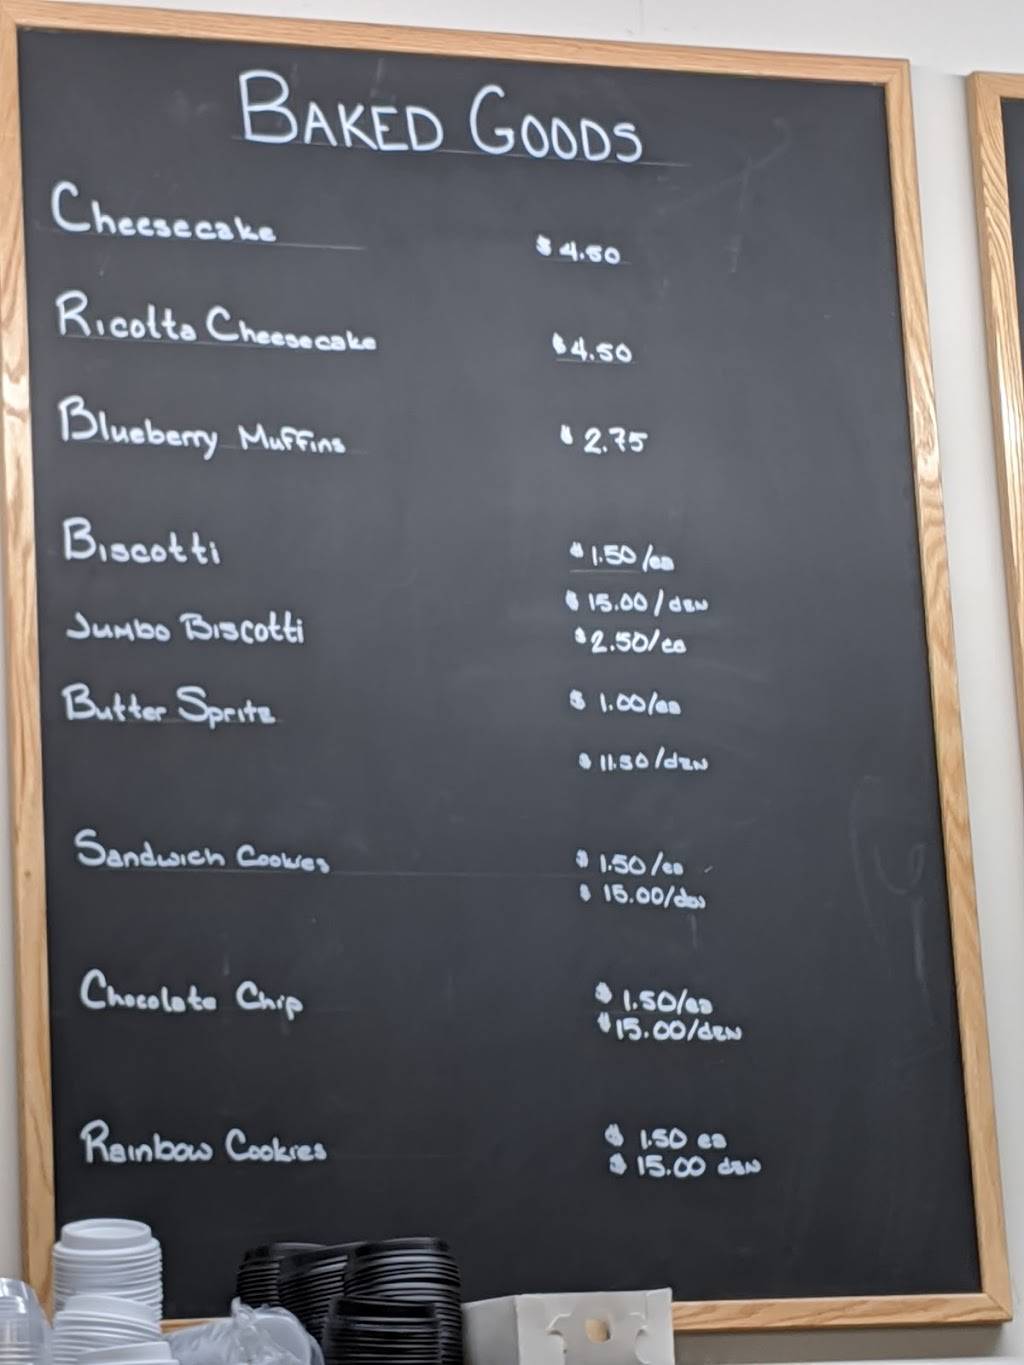 BAKED GOODS
Cheesecake $4.50
Ricotta Cheesecake $4.50
Blueberry Muffins $2.75
Biscotti $1.50/ea
$15.00/dzn
Jumbo Biscotti $2.50/ea
Butter Spritz $1.00/ea
$11.50/dzn
Sandwich Cookies $1.50/ea
$15.00/dzn
Chocolate Chip $1.50/ea
$15.00/dzn
Rainbow Cookies $1.50 ea
$15.00 dzn